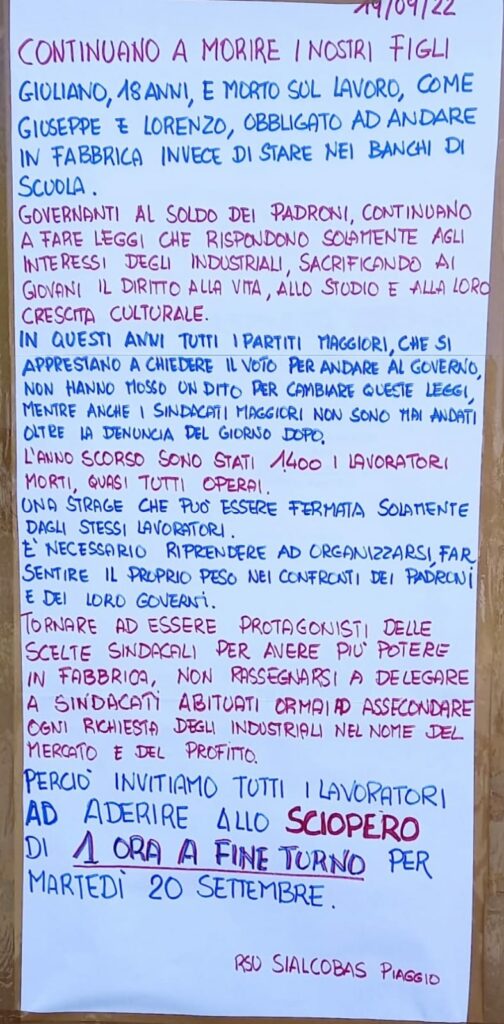 19/09/22
CONTINUANO A MORIRE I NOSTRI FIGLI
GIULIANO, 18 ANNI, E MORTO SUL LAVORO, COME
GIUSEPPE E LORENZO, OBBLIGATO AD ANDARE
IN FABBRICA INVECE DI STARE NEI BANCHI DI
SCUOLA.
GOVERNANTI AL SOLDO DEI PADRONI, CONTINUANO
A FARE LEGGI CHE RISPONDONO SOLAMENTE AGLI
INTERESSI DEGLI INDUSTRIALI, SACRIFICANDO AI
GIOVANI IL DIRITTO ALLA VITA, ALLO STUDIO E ALLA LORO
CRESCITA CULTURALE.
IN QUESTI ANNI TUTTI I PARTITI MAGGIORI, CHE SI
APPRESTANO A CHIEDERE IL VOTO PER ANDARE AL GOVERNO,
NON HANNO MOSSO UN DITO PER CAMBIARE QUESTE LEGGI,
MENTRE ANCHE I SINDACATI MAGGIORI NON SONO MAI ANDATI
OLTRE LA DENUNCIA DEL GIORNO DOPO.
L'ANNO SCORSO SONO STATI 1400 I LAVORATORI
MORTI, QUASI TUTTI OPERAI.
UNA STRAGE CHE PUÒ ESSERE FERMATA SOLAMENTE
DAGLI STESSI LAVORATORI.
È NECESSARIO RIPRENDERE AD ORGANIZZARSI, FAR
SENTIRE IL PROPRIO PESO NEI CONFRONTI DEI PADRONI
E DEI LORO GOVERNI.
TORNARE AD ESSERE PROTAGONISTI DELLE
SCELTE SINDACALI PER AVERE PIU' POTERE
IN FABBRICA, NON RASSEGNARSI A DELEGARE
A SINDACATI ABITUATI ORMAI AD ASSECONDARE
OGNI RICHIESTA DEGLI INDUSTRIALI NEL NOME DEL
MERCATO E DEL PROFITTO.
PERCIO' INVITIAMO TUTTI I LAVORATORI
AD ADERIRE ALLO SCIOPERO
DI 1 ORA A FINE TURNO PER
MARTEDÌ 20 SETTEMBRE.
RSU SIALCOBAS PIAGGIO